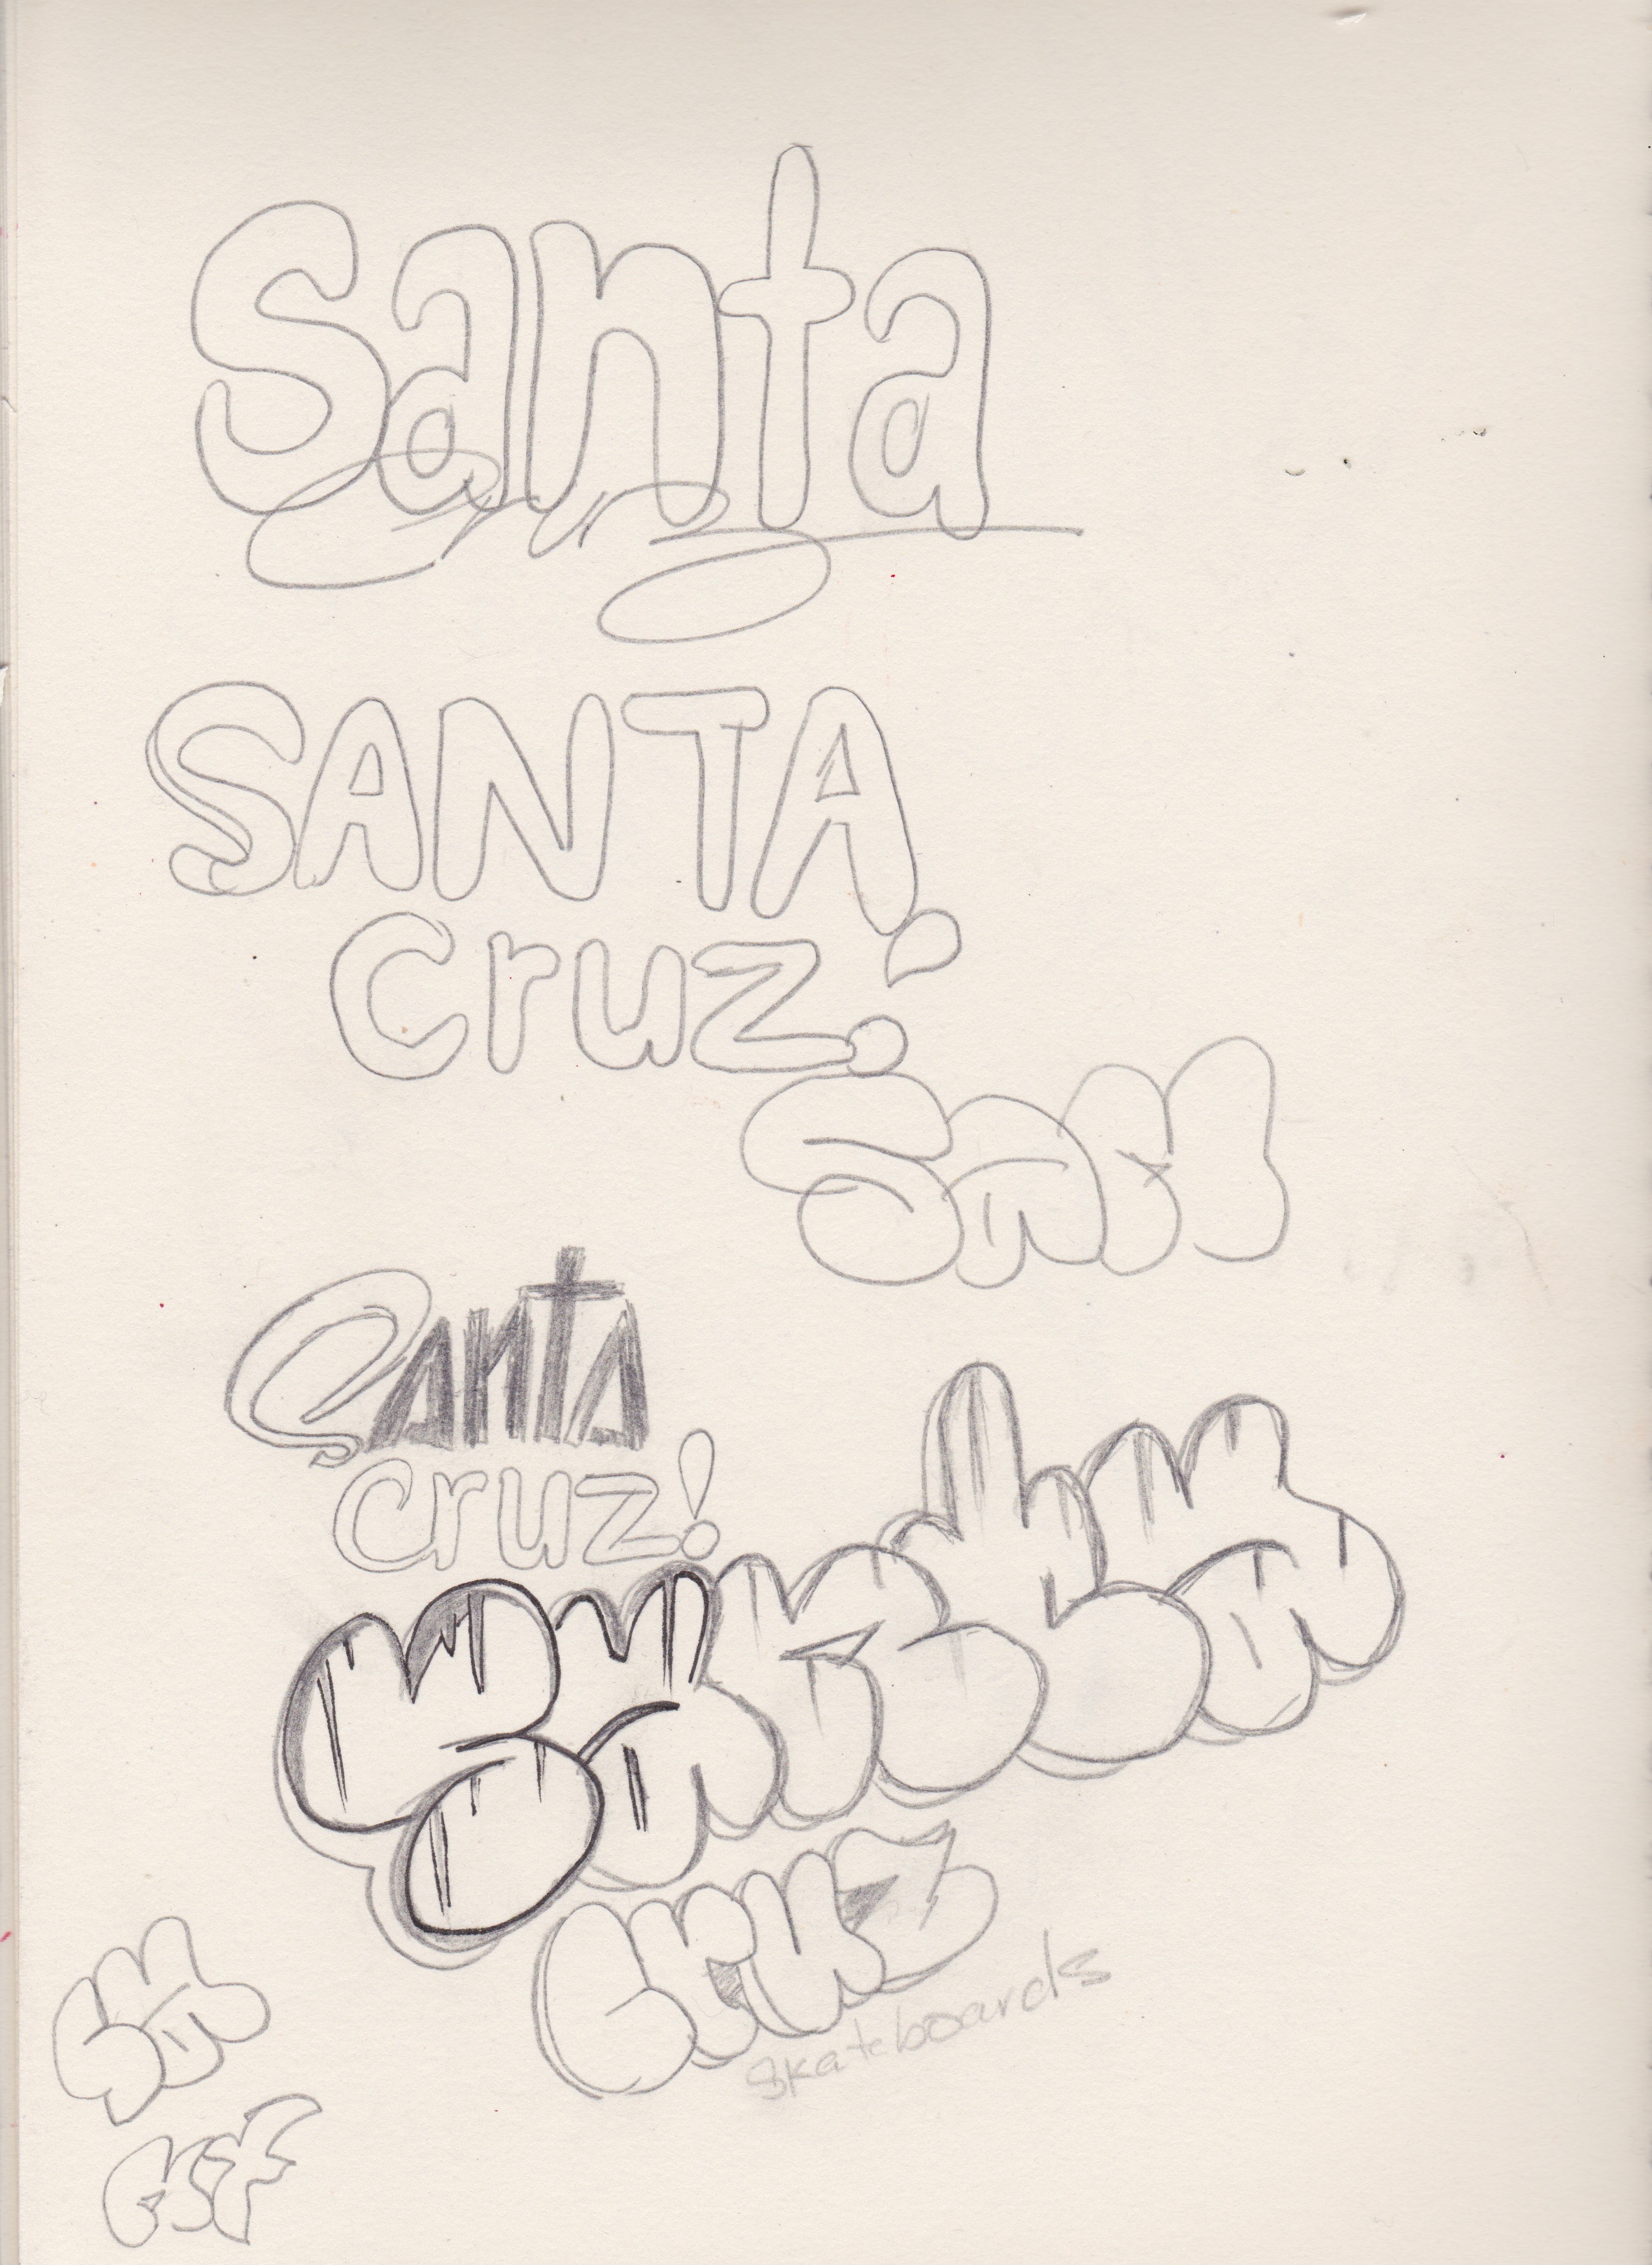 Santa
SANTA
Cruz!
San
Santa
cruz!
Santa
Cruz
skateboards